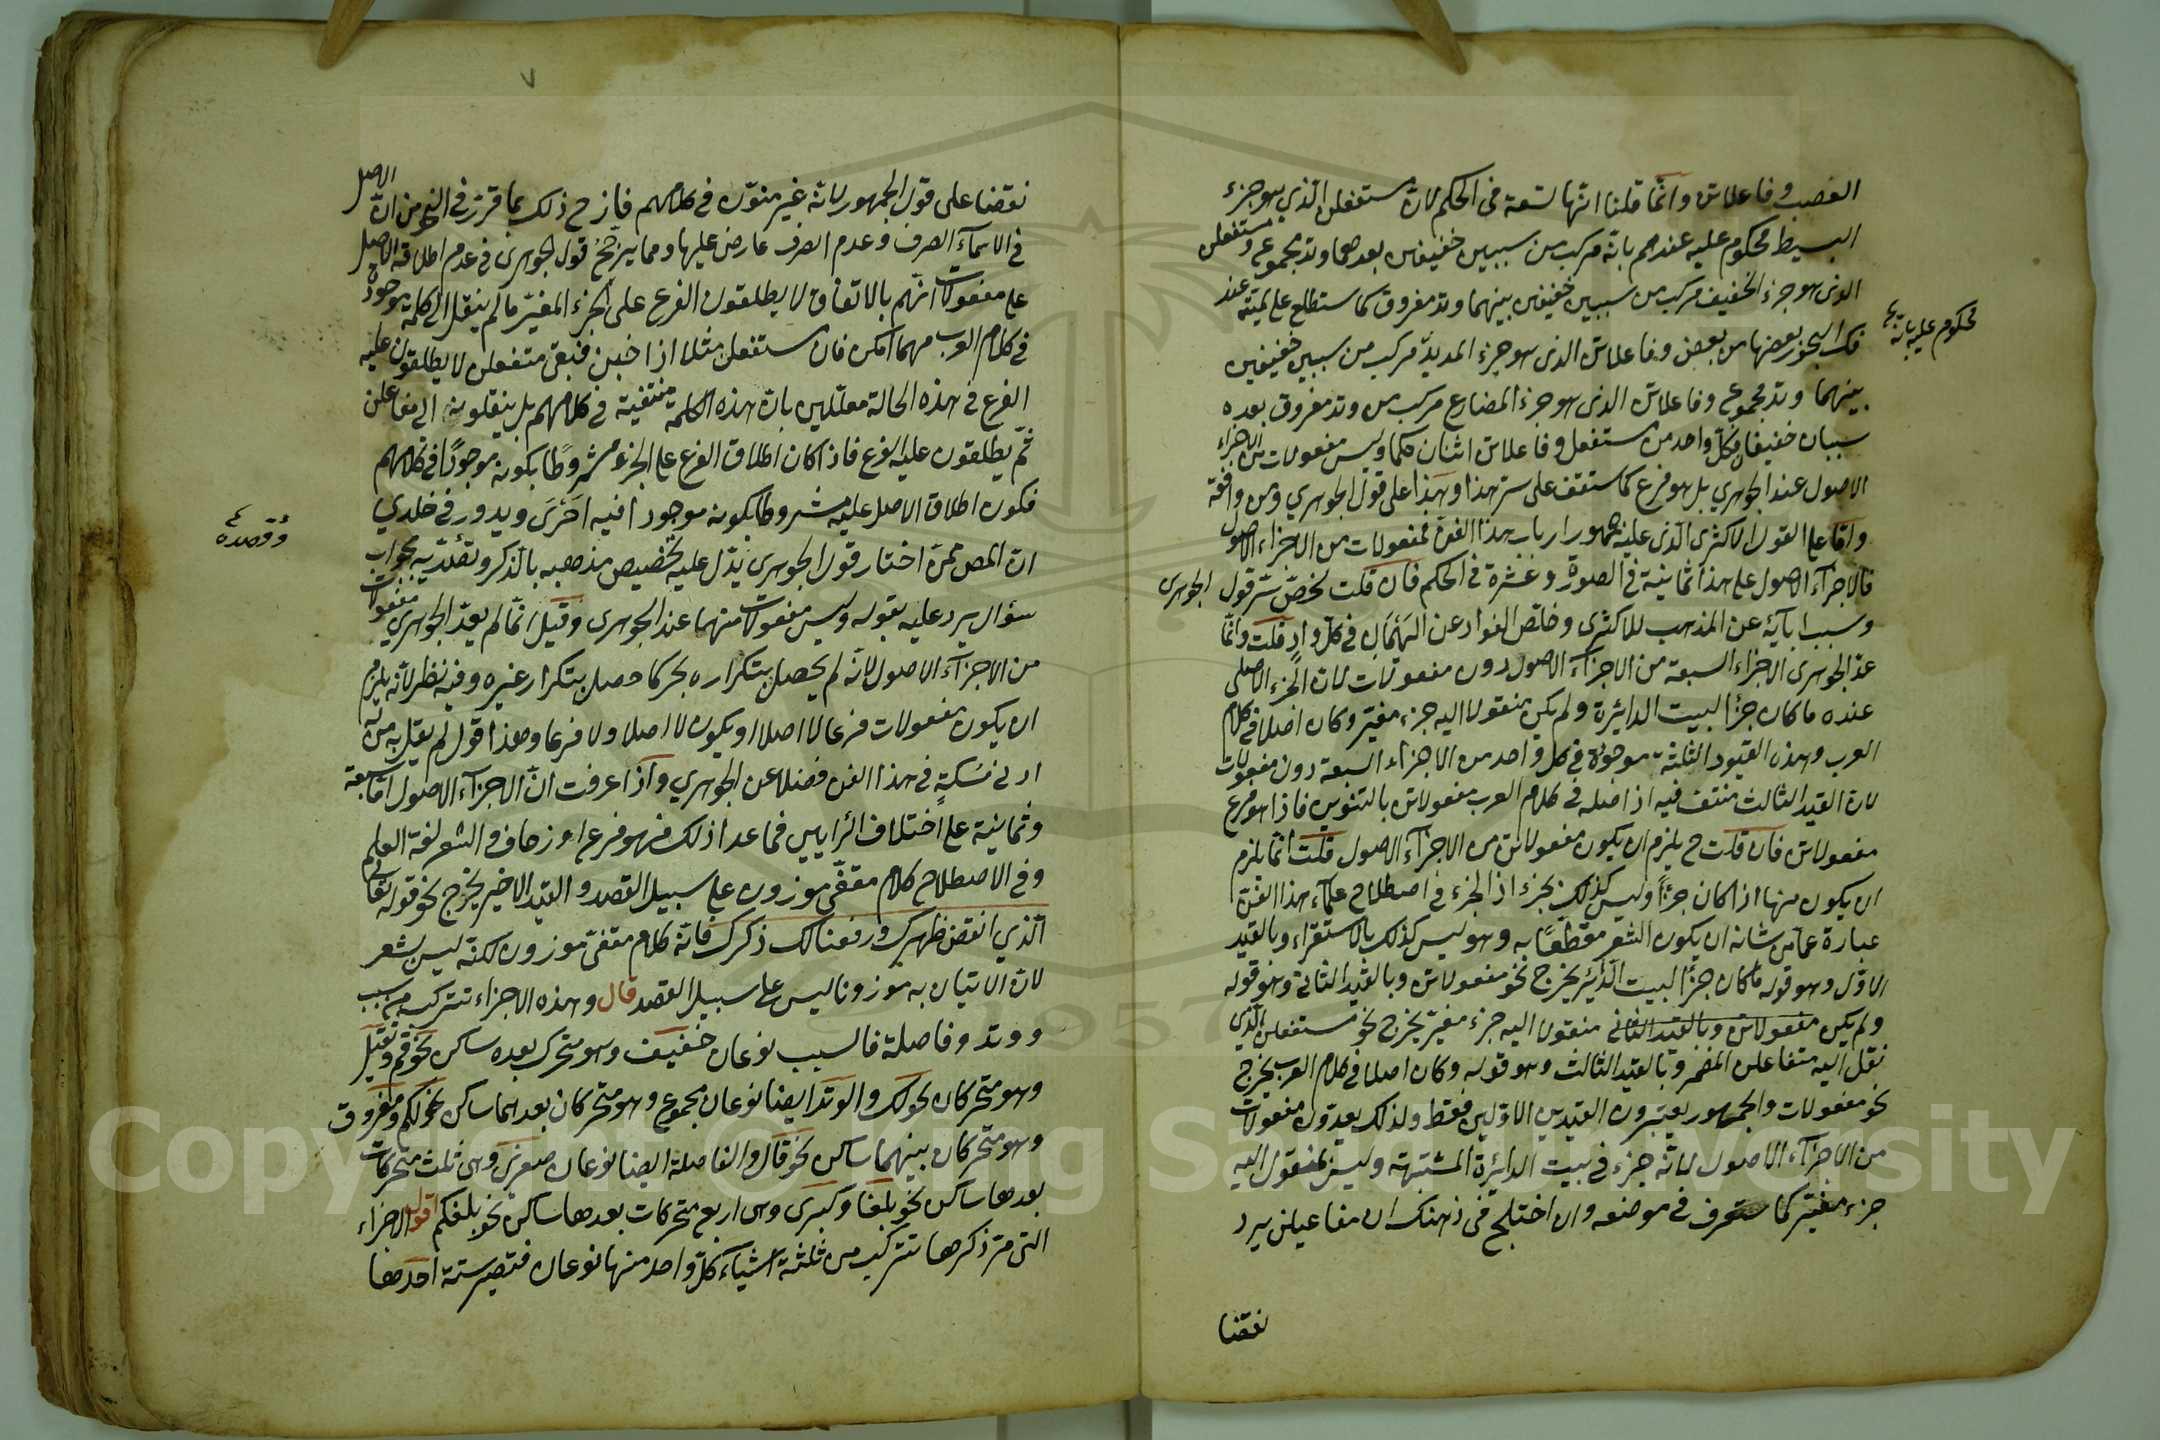 الغصب وفاعلاتن وانما قلنا انها تسعة في الحكم لان مستفعلن الذي هو جزء
البسيط محكوم عليه عندهم بانه مركب من سببين خفيفين بعدهما وتد مجموع ومستفعلن
الذي هو جزء الخفيف مركب من سببين خفيفين بينهما وتد مفروق كما ستطلع على لميته عند
محكوم عليه بانه
فك البحور بعضها من بعض وفاعلاتن الذي هو جزء المديد مركب من سببين خفيفين
بينهما وتد مجموع وفاعلاتن الذي هو جزء المضارع مركب من وتد مفروق بعده
سببان خفيفان فكل واحد من مستفعلن وفاعلاتن اثنان حكما وليس مفعولات من الاجزاء
الاصول عند الجوهري بل هو فرع كما ستقف على سر هذا وهذا على قول الجوهري ومن وافقه
واما على القول الاكثرى الذي عليه جمهور ارباب هذا الفن فمفعولات من الاجزاء الاصول
فالاجزاء الاصول على هذا ثمانية في الصورة وعشرة في الحكم فان قلت لخص سر قول الجوهري
وسبب ابائه عن المذهب للاكثرى وخلص الفواد عن الهيمان في كل واد قلت وانما
عد الجوهرى الاجزاء السبعة من الاجزاء الاصول دون مفعولات لان الجزء الاصلى
عنده ما كان جزأ لبيت الدايرة ولم يكن منقولا اليه جزء مغير وكان اصلا في كلام
العرب وهذه القيود الثلثة موجودة في كل واحد من الاجزاء السبعة دون مفعولات
لان القيد الثالث منتف فيه اذ اصله في كلام العرب مفعولاتن بالتنوين فاذا هو فرع
مفعولاتن فان قلت ح يلزم ان يكون مفعولاتن من الاجزاء الاصول قلت انما يلزم
ان يكون منها اذا كان جزأ وليس كذلك بجزء اذ الجزء في اصطلاح علماء هذا الفن
عبارة عما من شانه ان يكون الشعر مقطعا به وهو ليس كذلك بالاستقراء وبالقيد
الاول وهو قوله ما كان جزأ لبيت الدائرة يخرج نحو مفعولاتن وبالقيد الثاني وهو قوله
ولم يكن مفعولاتن وبالقيد الثاني منقولا اليه جزء مغير يخرج نحو مستفعلن الذي
نقل اليه متفاعلن المضمر وبالقيد الثالث وهو قوله وكان اصلا في كلام العرب يخرج
نحو مفعولات والجمهور يعتبرون القيدين الاولين فقط ولذلك يعدون مفعولات
من الاجزاء الاصول لانه جزء في بيت الدائرة المشتبهة وليس بمنقول اليه
جزء مغير كما ستعرف في موضعه وان اختلج في ذهنك ان مفاعيلن يرد
نقضا
٧
نقضا على قول الجمهور لانه غير منون في كلامهم فازح ذلك بما قرر في النحو من ان الاصل
في الاسماء الصرف وعدم الصرف عارض عليها ومما يرجح قول الجوهرى في عدم اطلاقه الاصل
على مفعولات انهم بالاتفاق لا يطلقون الفرع على الجزء المغير مالم ينقل الى كلمة موجودة
في كلام العرب مهما امكن فان مستفعلن مثلا اذا خبن فبقى متفعلن لا يطلقون عليه
الفرع في هذه الحالة معللين بان هذه الكلمة منتفية في كلامهم بل ينقلونه الى مفاعلن
ثم يطلقون عليه الفرع فاذا كان اطلاق الفرع على الجزء مشروطا بكونه موجودا في كلامهم
فكون اطلاق الاصل عليه مشروطا بكونه موجودا فيه احرى ويدور في خلدي
ان المص ممن اختار قول الجوهرى يدل عليه تخصيص مذهبه بالذكر وتصديه بجواب
وقصده
سؤال يرد عليه بقوله وليس مفعولات منهما عند الجوهرى وقيل انما لم يعد الجوهري مفعولات
من الاجزاء الاصول لانه لم يحصل بتكراره بحر كما حصل بتكرار غيره وفيه نظر لانه يلزم
ان يكون مفعولات فرعا لا اصلا او يكون لا اصلا ولا فرعا وهذا قول لم يقل به من له
ادنى مسكة في هذا الفن فضلا عن الجوهري واذا عرفت ان الاجزاء الاصول اما سبعة
وثمانية على اختلاف الرايين فما عدا ذلك فهو فرع او زحاف والشعر لغة العلم
وفي الاصطلاح كلام مقفى موزون على سبيل القصد والقيد الاخير يخرج نحو قوله تعالى
الذي انقض ظهرك ورفعنا لك ذكرك فانه كلام مقفى موزون لكنه ليس بشعر
لان الاتيان به موزونا ليس على سبيل القصد قال وهذه الاجزاء تتركب من سبب
ووتد وفاصلة فالسبب نوعان خفيف وهو متحرك بعده ساكن نحو قم وثقيل
وهو متحركان نحو لك والوتد ايضا نوعان مجموع وهو متحركان بعدهما ساكن نحو لكم ومفروق
وهو متحركان بينهما ساكن نحو قال والفاصلة ايضا نوعان صغرى وهى ثلث متحركات
بعدها ساكن نحو بلغا وكبرى وهى اربع متحركات بعدها ساكن نحو بلغكم اقول الاجزاء
التى مر ذكرها تتركب من ثلثة اشياء كل واحد منها نوعان فتصير ستة احدها
Copyright © King Saud University
1957